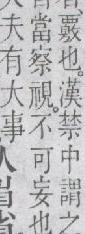 覈也。漢禁中謂之
皆當察視。不可妄也
夫有大事
省